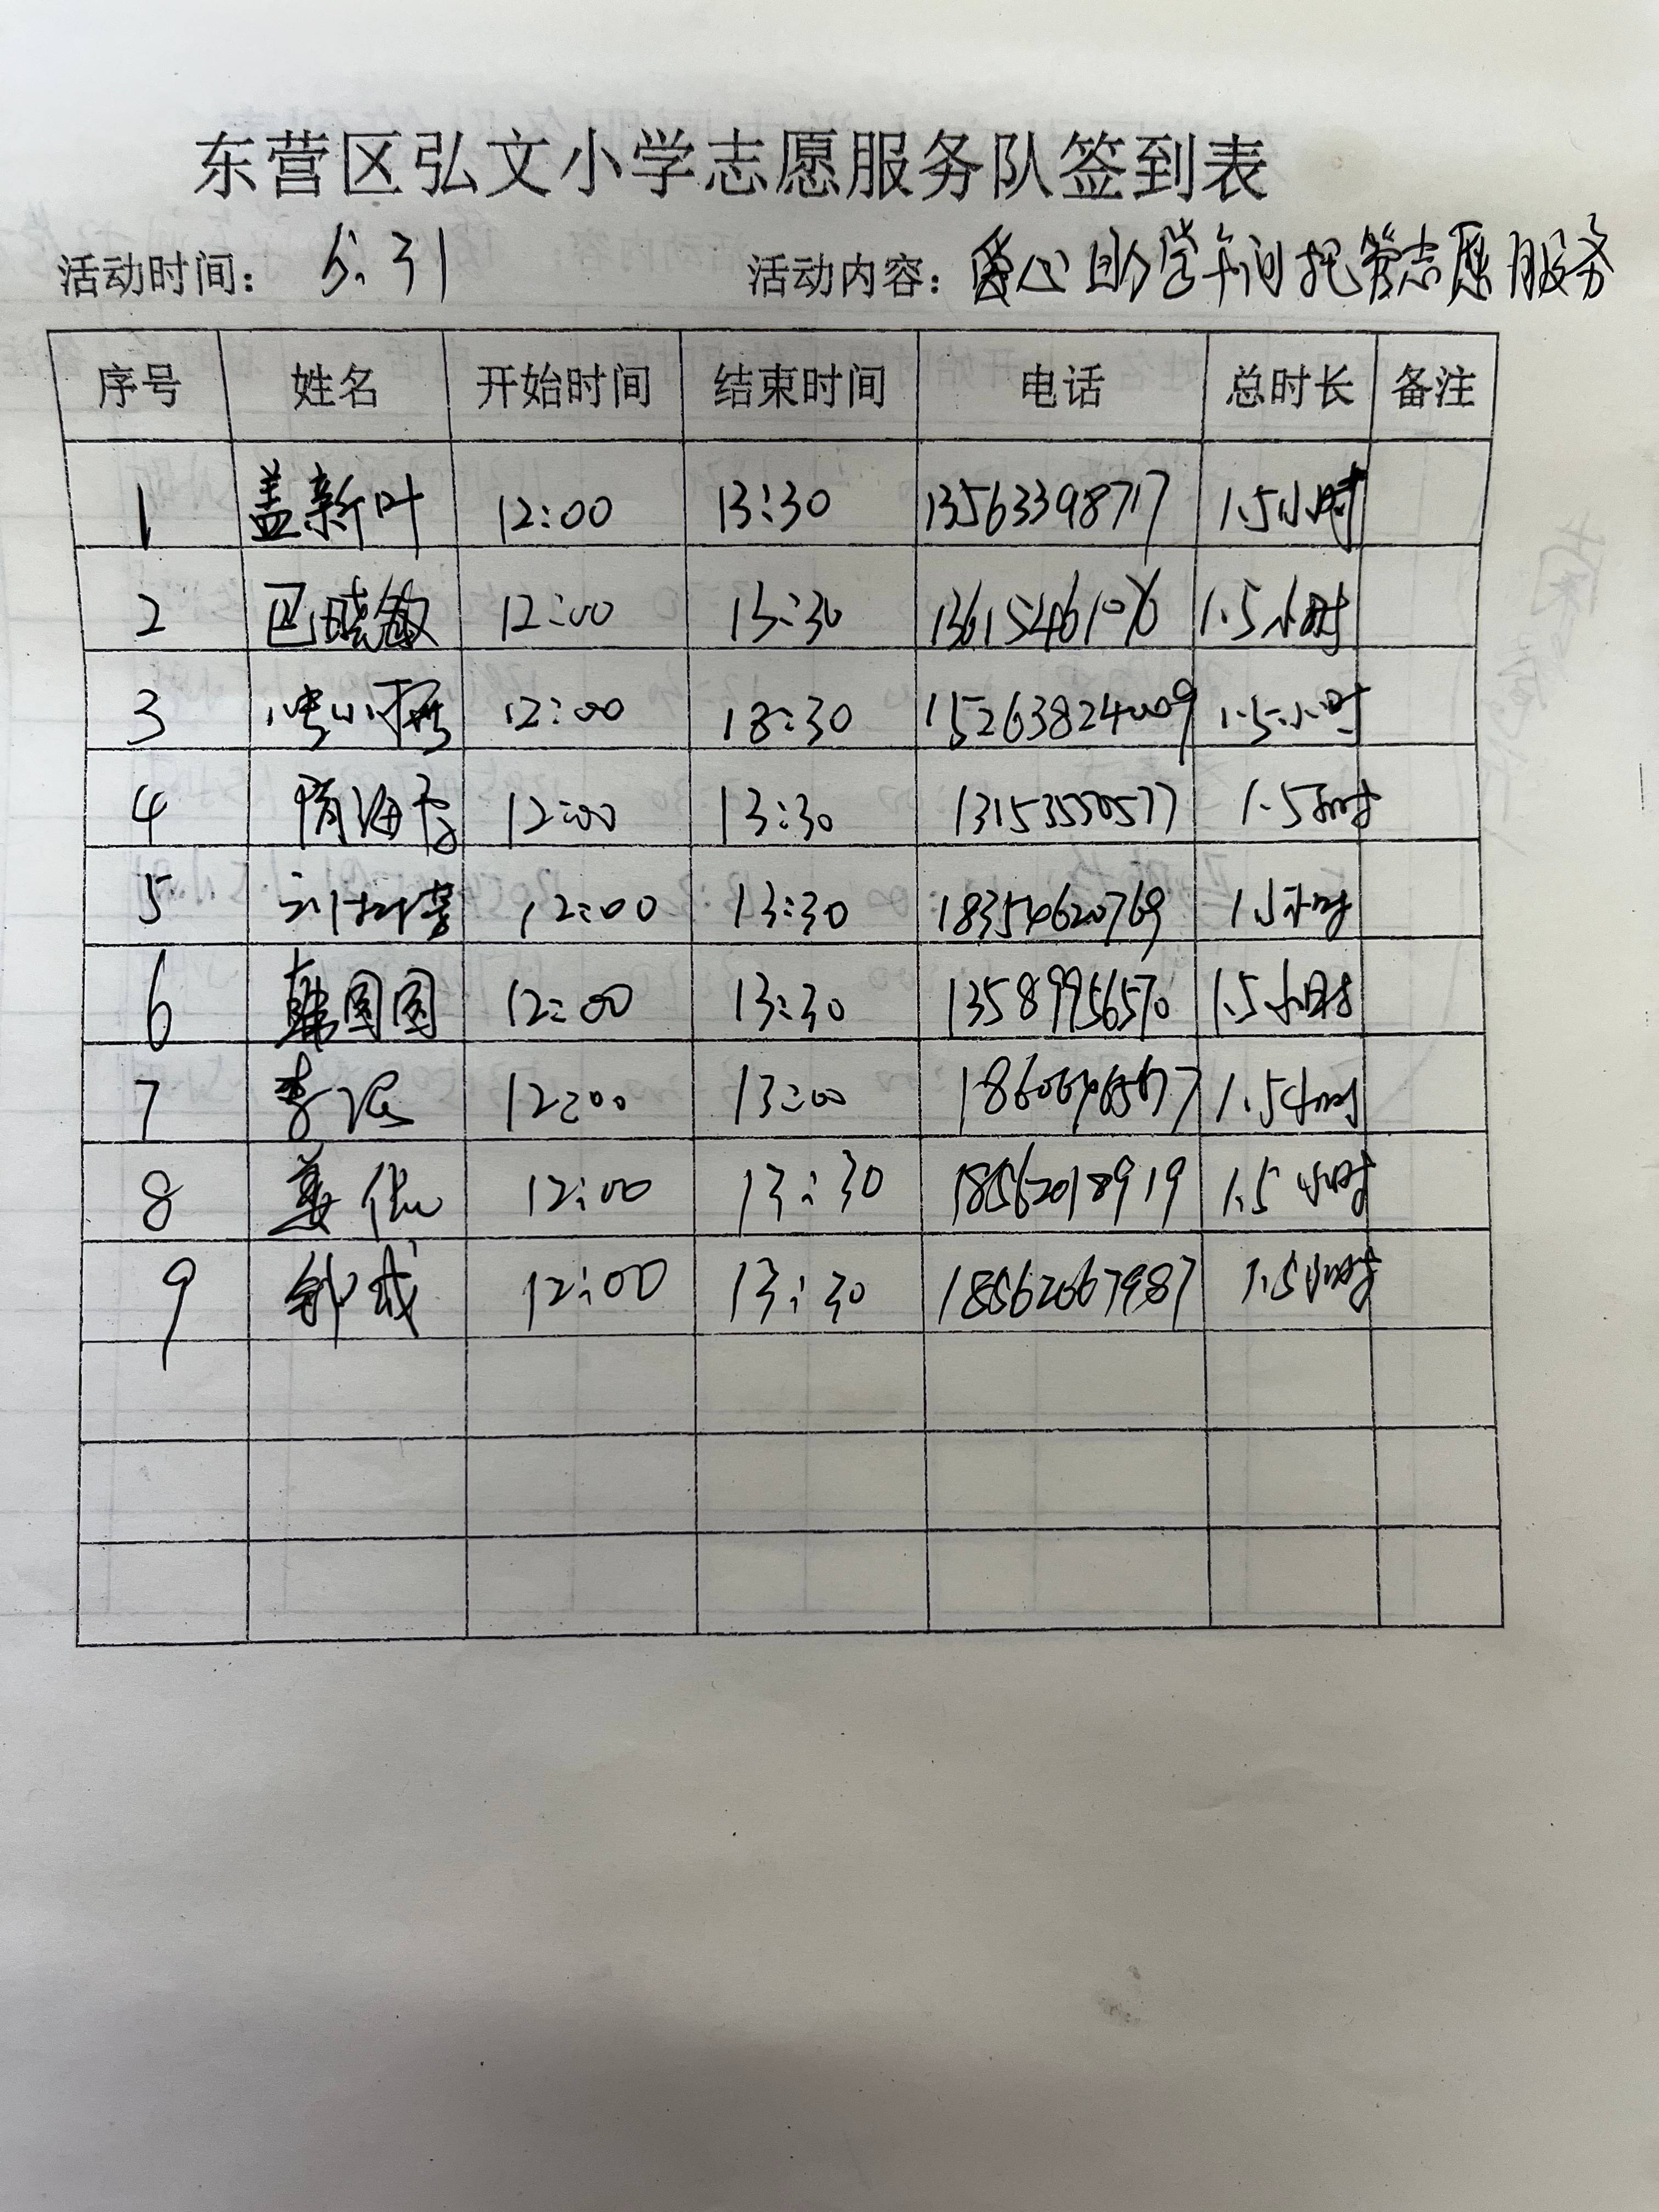 东营区弘文小学志愿服务队签到表
活动时间： 5.31 活动内容：爱心助学午间托管志愿服务
序号 姓名 开始时间 结束时间 电话 总时长 备注
1 盖新叶 12:00 13:30 13563398717 1.5小时
2 巴晓敏 12:00 13:30 1.5小时
3 12:00 18:30 15263824009 1.5小时
4 12:00 13:30 13153550577 1.5小时
5 12:00 13:30 18354620769 1.5小时
6 韩国国 12:00 13:30 13589956570 1.5小时
7 李 12:00 13:00 1.5小时
8 姜 12:00 13:30 18562018919 1.5小时
9 12:00 13:30 18562067987 1.5小时